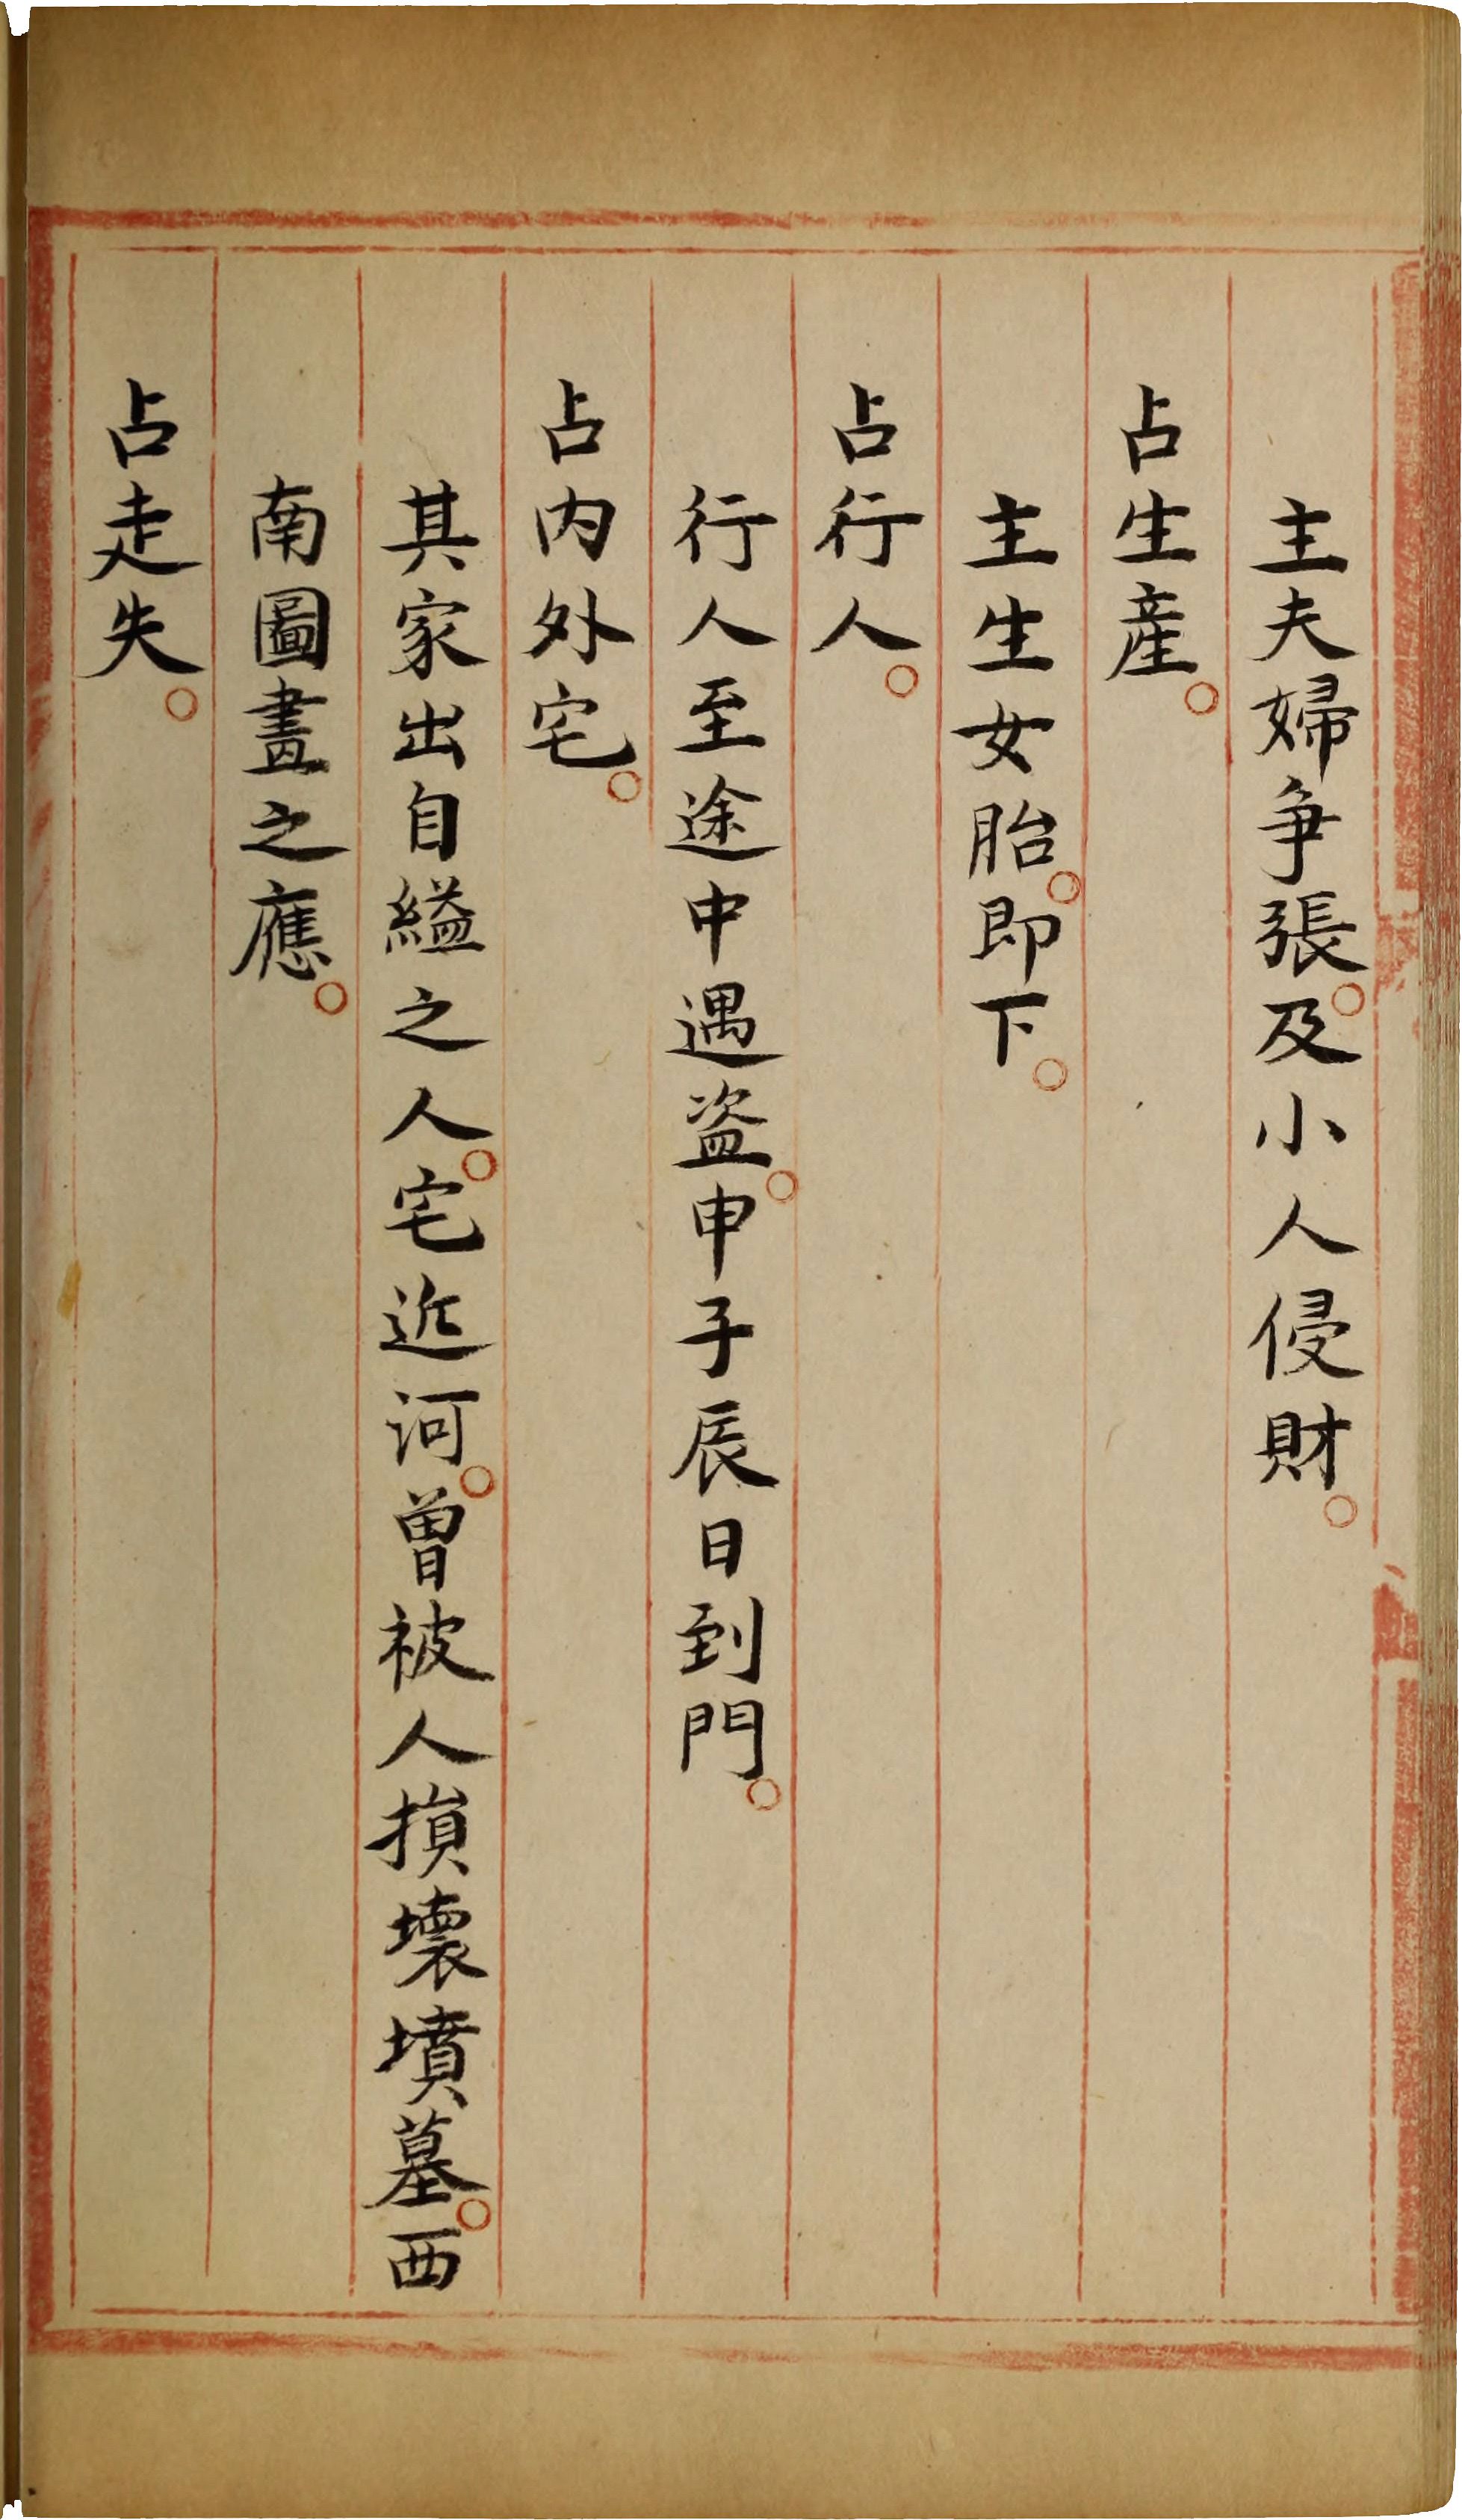 主夫婦爭張。及小人侵財。
占生產。
主生女胎。即下。
占行人。
行人至途中遇盜。申子辰日到門。
占内外宅。
其家出自縊之人。宅近河。曽被人損壞墳墓。西
南圖畫之應。
占走失。